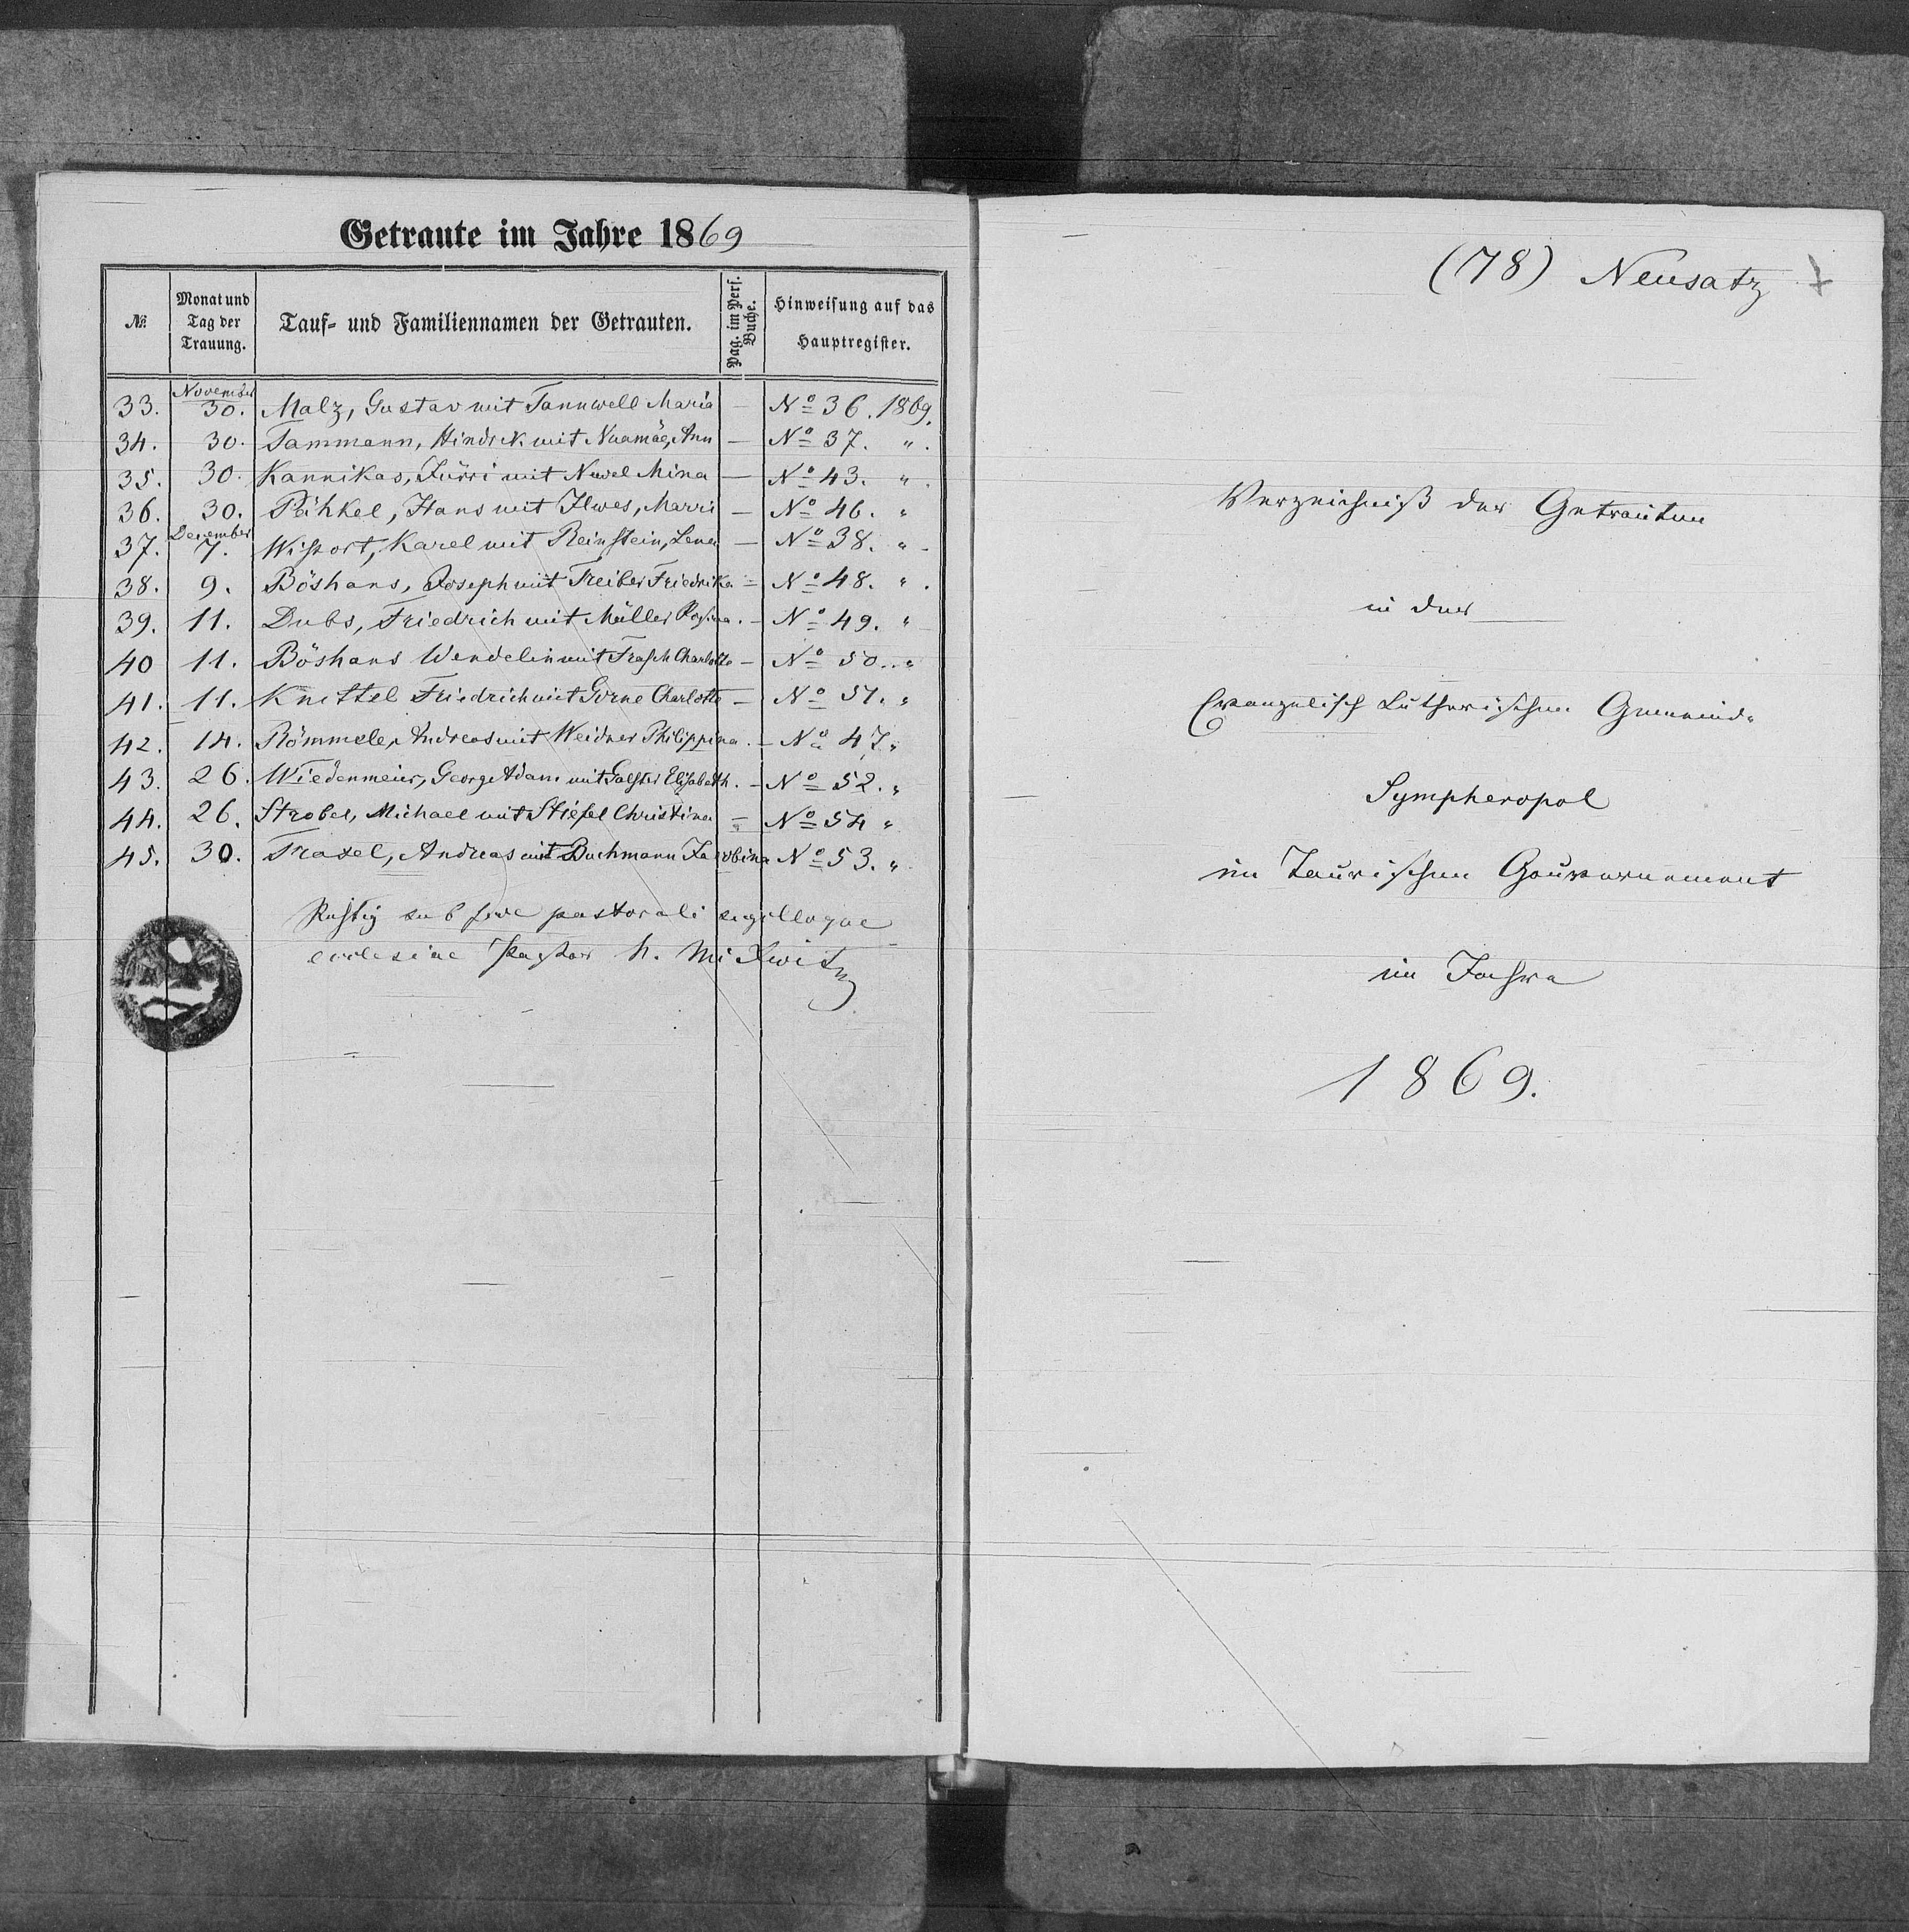 Getraute im Jahre 1869
№ Monat und Tag der Trauung. Tauf- und Familiennamen der Getrauten. Pag. im Pers. Buche. Hinweisung auf das Hauptregister.
November
33. 30. Malz, Gustav mit Tannwell Maria — No 36. 1869.
34. 30. Tammann, Hindrik mit Ann — No 37. "
35. 30. Kannikas, Jürri mit Mina — No 43. "
36. 30. Pähkel, Hans mit Ilwes, Marri — No 46. "
December
37. 7. Karel mit Reinstein, Lena — No 38. "
38. 9. Böshans, Joseph mit Treiber Friedrika — No 48. "
39. 11. Dubs, Friedrich mit Müller Rosina. — No 49. "
40 11. Böshans Wendelin mit Frasch Charlotte — No 50. "
41. 11. Knittel Friedrich mit Charlotte — No 51. "
42. 14. Römmele, Andreas mit Weidner Philippina. — No 47. "
43. 26. Wiedenmeier, George Adam mit Elisabeth. — No 52. "
44. 26. Strobel, Michael mit Stiefel Christina — No 54 "
45. 30. Traxel, Andreas mit Buchmann Jacobina No 53. "
sub fide pastorali sigilloque
ecclesiae Pastor H. Mickwitz
(78) Neusatz
Verzeichniß der Getrauten
in der
Evangelisch Lutherischen Gemeinde
Sympheropol
im Taurischen Gouvernement
im Jahre
1869.